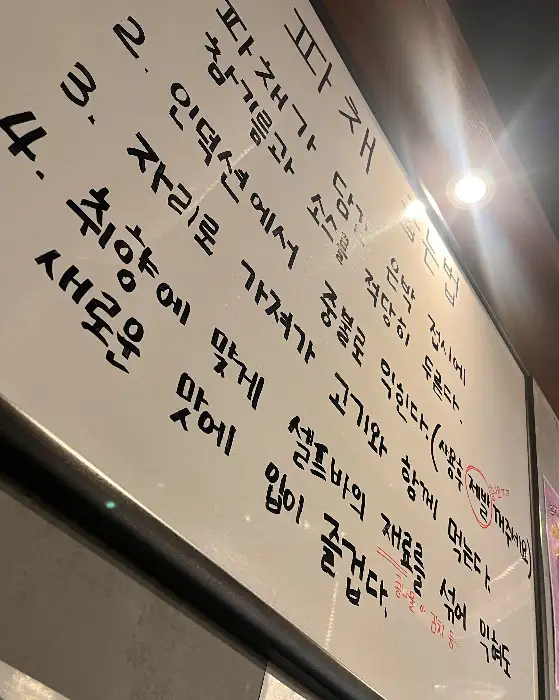 파채 굽는법
파채가 담긴 은박 접시에
참기름과 소금을 적당히 두른다.
2. 인덕션에서 중불로 익힌다. (사용후 제발 꺼주세요)
3. 자리로 가져가 고기와 함께 먹는다.
4. 취향에 맞게 셀프바의 재료를 섞어 익혀도
콩나물, 김치 등
새로운 맛에 입이 즐겁다.